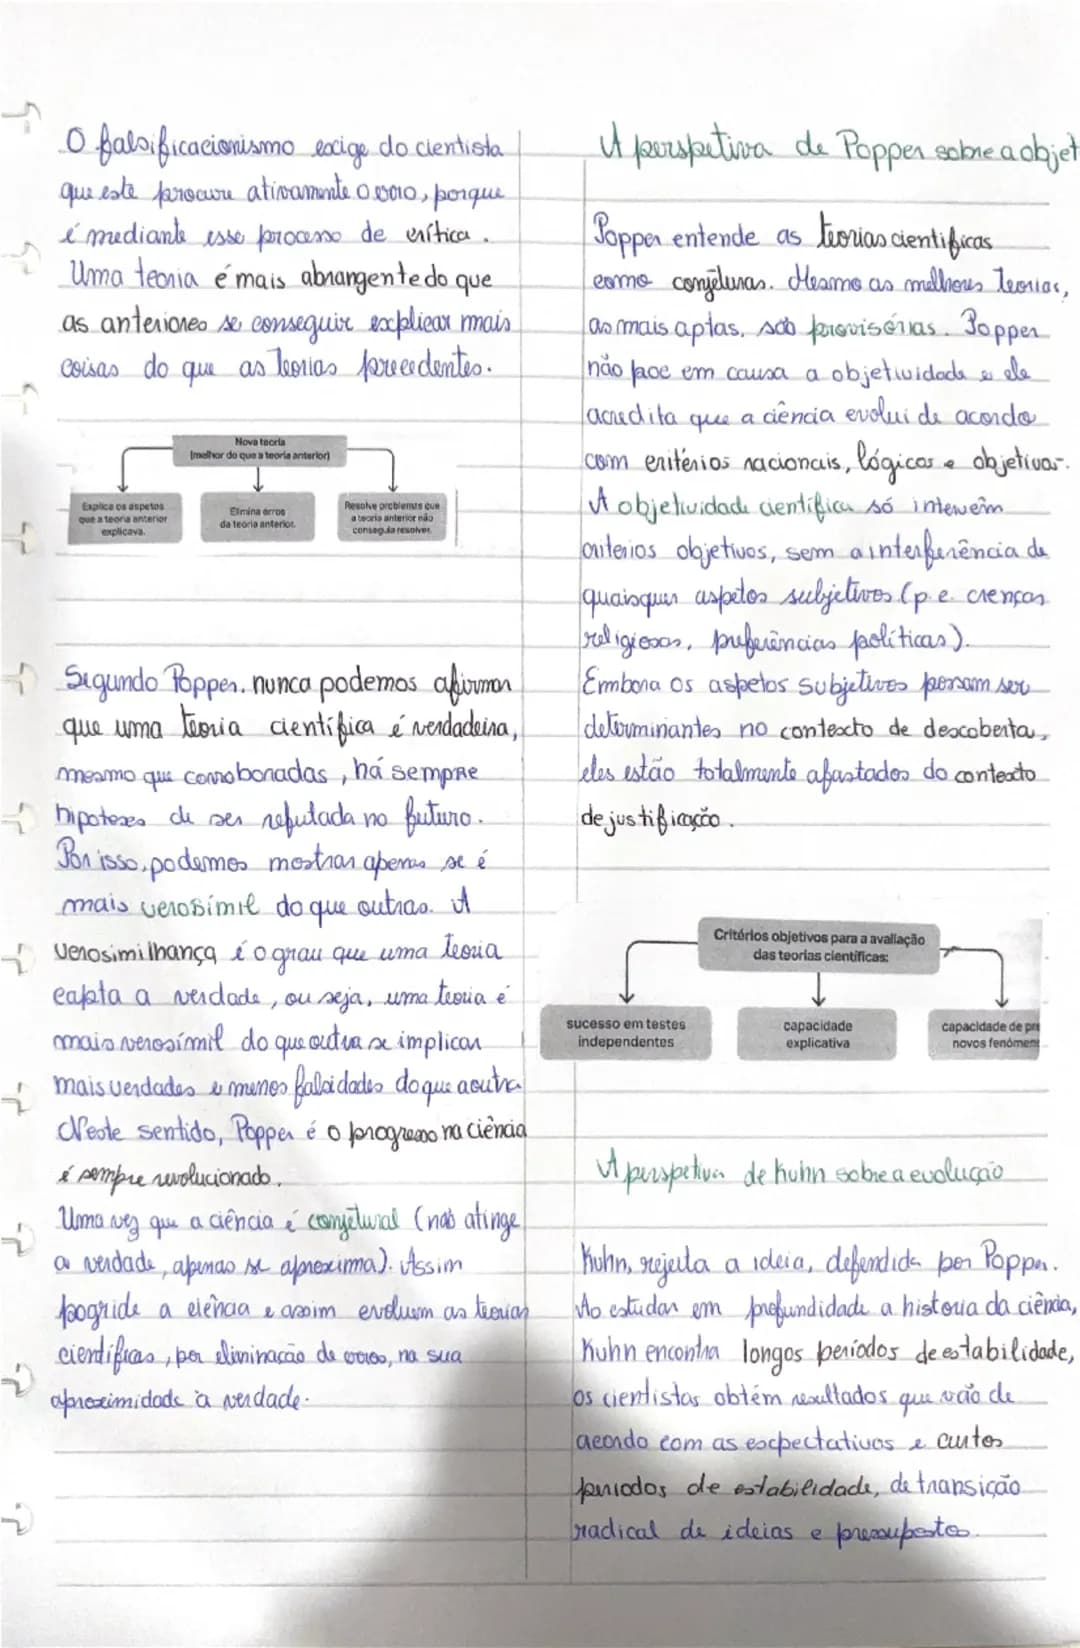 O falsificacionismo exige do cientista
que este procure ativamente o erro, porque
é mediante esse processo de crítica.
Uma teoria é mais abrangente do que
as anteriores se conseguir explicar mais
coisas do que as teorias precedentes.
Nova teoria
(melhor do que a teoria anterior)
Explica os aspetos
que a teoria anterior
explicava.
Elimina erros
da teoria anterior.
Resolve problemas que
a teoria anterior não
conseguia resolver.
Segundo Popper, nunca podemos afirmar
que uma teoria científica é verdadeira,
mesmo que corroboradas, há sempre
hipoteses de ser refutada no futuro.
Por isso, podemos mostrar apenas se é
mais verosímil do que outras. A
verosimilhança é o grau que uma teoria
capta a verdade, ou seja, uma teoria é
mais verosímil do que outra se implicar
mais verdades e menos falsidades do que a outra
Neste sentido, Popper é o progresso na ciência
é sempre revolucionado.
Uma vez que a ciência é conjetural (não atinge
a verdade, apenas se aproxima). Assim
pogride a ciência e assim evoluem as teorias
científicas, por eliminação de erros, na sua
aproximidade à verdade.
A perspetiva de Popper sobre a objet
Popper entende as teorias cientificas
como conjeturas. Mesmo as melhores teorias,
as mais aptas, são provisórias. Popper
não poe em causa a objetividade e ele
acredita que a ciência evolui de acordo
com critérios racionais, lógicos e objetivos.
A objetividade científica só intervêm
criterios objetivos, sem a interferência de
quaisquer aspetos subjetivos (p.e. crenças
religiosas, preferências políticas).
Embora os aspetos subjetivos possam ser
determinantes no contexto de descoberta,
eles estão totalmente afastados do contexto
de justificação.
Critérios objetivos para a avaliação
das teorias científicas:
sucesso em testes
independentes
capacidade
explicativa
capacidade de pre
novos fenómen
A perspetiva de Kuhn sobre a evolução
Kuhn, rejeita a ideia, defendida por Popper.
Ao estudar em profundidade a historia da ciência,
Kuhn encontra longos períodos de estabilidade,
os cientistas obtêm resultados que vão de
acordo com as expectativas e curtos
periodos de estabilidade, de transição
radical de ideias e pressupostos.